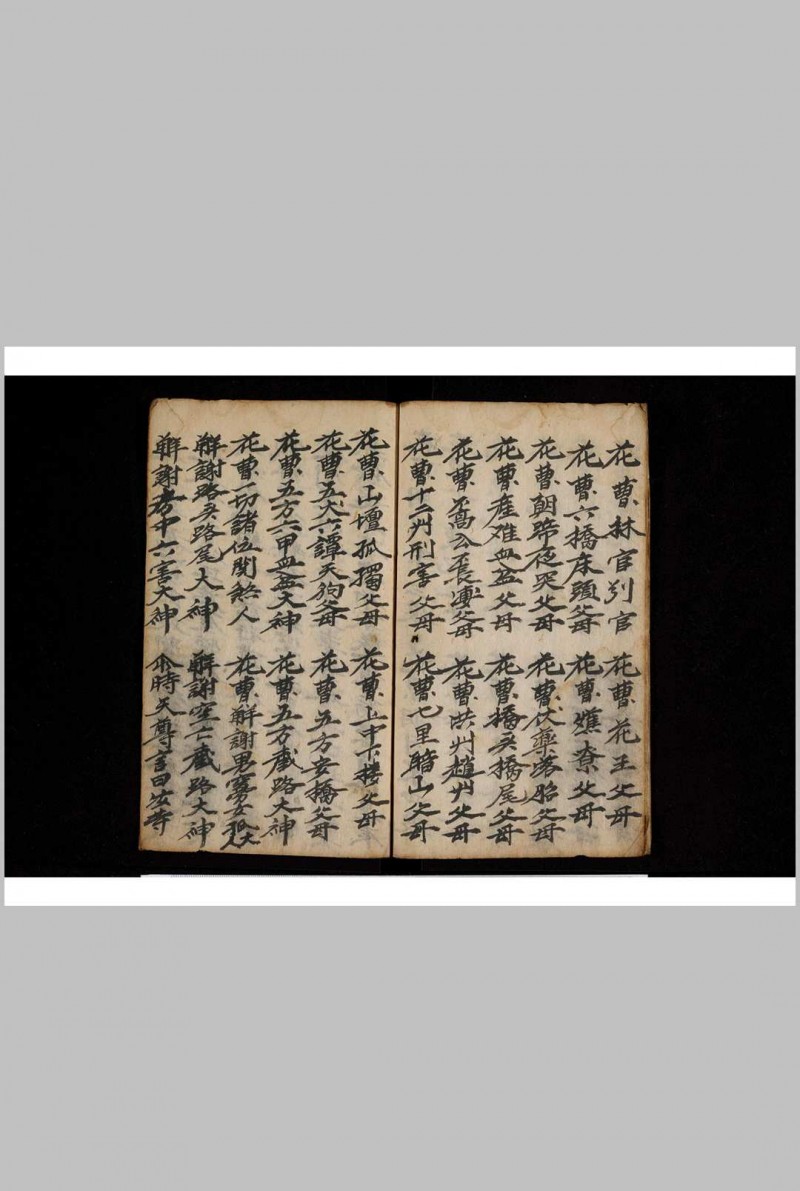 花曹林官判官 花曹花王父母
花曹六橋床頭父母 花曹爐寮父母
花曹朝啼夜哭父母 花曹伏藥落胎父母
花曹產难血盆父母 花曹橋头橋尾父母
花曹高公長婆父母 花曹洪州趙州父母
花曹十二州刑害父母 花曹七里踏山父母
花曹山壇孤獨父母 花曹上中下楼父母
花曹五犬六譚天狗父母 花曹五方安橋父母
花曹五方六甲血盆大神 花曹五方截路大神
花曹一切諸位関煞人 花曹解謝男寡女孤大人
解謝路头路尾大神 解謝空亡截路大神
解謝考中六害大神 尒時天尊言曰汝等